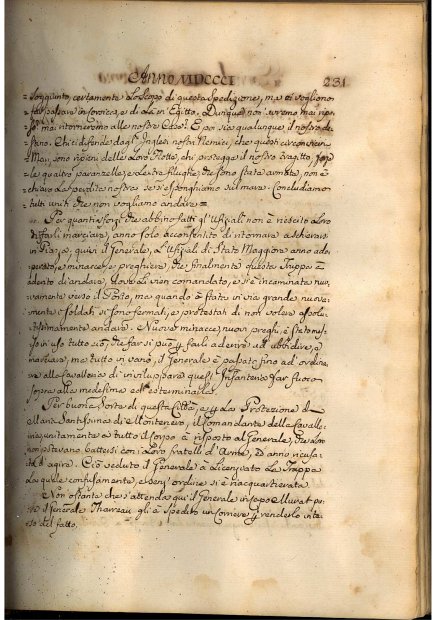 Anno MDCCCI
231.
congiunto, certamente lo scopo di questa Spedizione, ma ci vogliono
far passare in Corsica, e di là in Egitto. Dunque non avremo mai ripo-
so? mai ritorneremo alle nostre Case? E poi sia qualunque il nostro de-
stino. Chi ci difende dagl' Inglesi nostri Nemici, che questi circonvicini
Mari sono ripieni delle Loro Flotte, chi protegge il nostro tragitto,
le quattro paranzelle, e l'altre filughe che sono state armate, non è
chiara la perdita nostra se ci esponghiamo sul mare. Concludiamo
tutti uniti che non vogliamo andare =
Per quanti sforzi che abbino fatti gl' Ufiziali non è riescito Loro
di farli marciare, anno solo acconsentito di ritornare a schierarsi
in Piazza, quivi il Generale, L'Ufiziali di Stato Maggiore anno ado-
perato, e minacce, e preghiere, che finalmente questa Truppa à
aderito d'andare, dove li vien comandato, e si è incaminata nuo-
vamente verso il Porto, ma quando è stata in via grande nuova-
mente i Soldati si sono fermati, e protestati di non volere assolu-
tissimamente andare. Nuove minacce, nuovi preghi, è stato mes-
so in uso tutto ciò, che far si può p farli aderire ad ubbidire, e
marciare, ma tutto in vano, il Generale è passato fino ad ordina-
re alla Cavalleria di inviluppare quest' Infanteria, far fuoco
sopra alla medesima ed esterminarla.
Per buona Sorte di questa Città, e p La Protezione di
Maria Santissima di Montenero, il Comandante della Cavalle-
ria, unitamente a tutto il Corpo à risposto al Generale, che Lo-
ro non potevano battersi con i Loro fratelli d'Arme, Ed anno ricusa-
to d' agire. Ciò veduto il Generale à Licenziato La Truppa
La quale confusamente, e senz' ordine si è riacquartierata.
Non ostante che s'attenda qui il Generale in Capo Murat pu-
re il Generale Tharreau gli à spedito un Corriere p renderlo inte-
so del fatto.